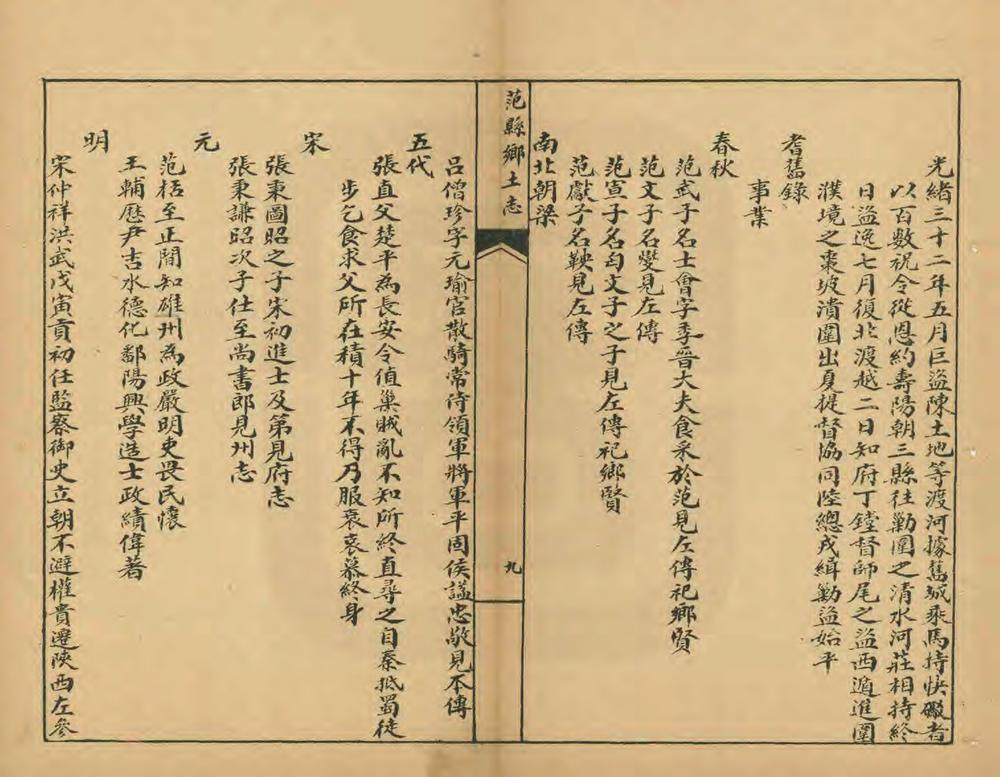 光緒三十二年五月巨盜陳土地等渡河據舊城乘馬持快礮者
以百數祝令從恩約壽陽朝三縣往勦圍之清水河莊相持終
日盜逸七月復北渡越二日知府丁鏜督師尾之盜西遁進圍
濮境之棗坡潰圍出夏提督協同陸總戎緝勦盜始平
耆舊錄
事業
春秋
范武子名士會字季晉大夫食采於范見左傳祀鄉賢
范文子名燮見左傳
范宣子名匄文子之子見左傳祀鄉賢
范獻子名鞅見左傳
南北朝梁
范縣鄉土志
九
呂僧珍字元瑜官散騎常侍領軍將軍平固侯謚忠敬見本傳
五代
張直父楚平為長安令值巢賊亂不知所終直尋之自秦抵蜀徒
步乞食求父所在積十年不得乃服衰哀慕終身
宋
張秉圖昭之子宋初進士及第見府志
張秉謙昭次子仕至尚書郎見州志
元
范栝至正間知雄州為政嚴明吏畏民懷
王輔歷尹吉水德化鄱陽興學造士政績偉著
明
宋仲祥洪武戊寅貢初任監察御史立朝不避權貴遷陝西左參